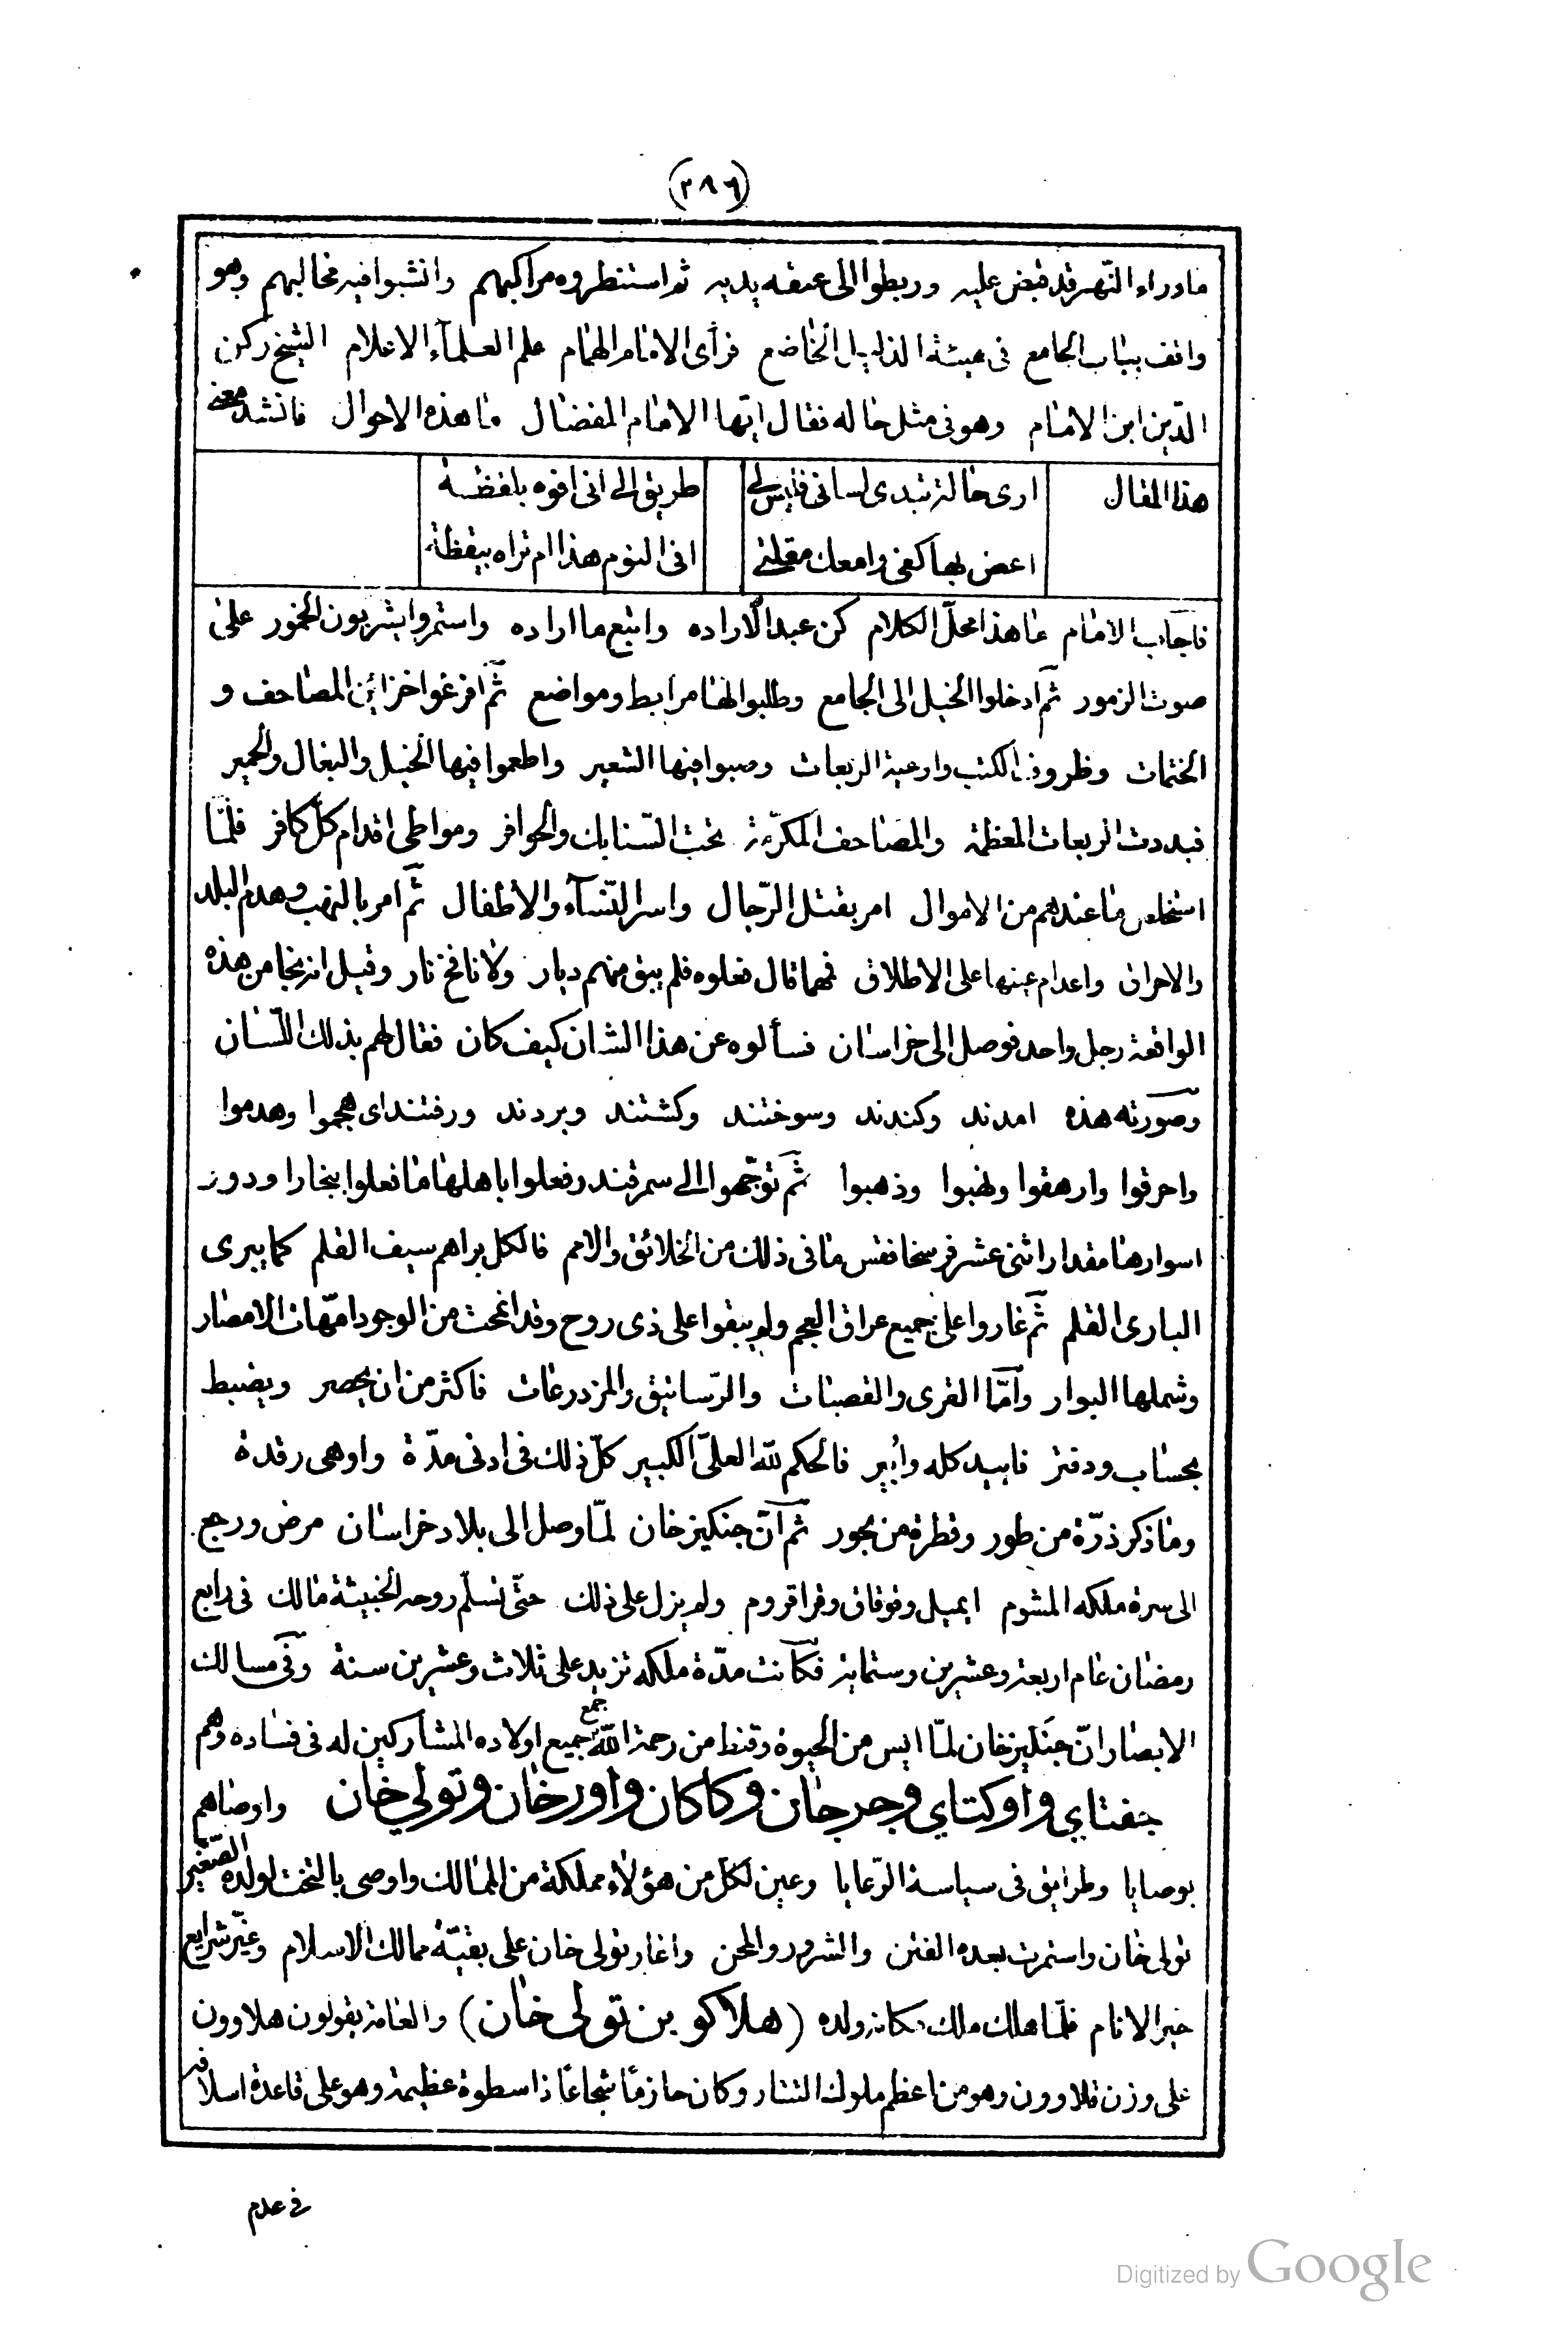 (٢٨٦)
ماوراء النّهر قد قبض عليه وربطوا الى عنقه يديه ثم استنظروه مراكبهم وانشبوا فيه مخاليبهم وهو
واقف بباب الجامع فى هيئة الذليل الخاضع فرأى الامام الهمام علم العلمآء الاعلام الشيخ ركن
الدّين ابن الامام وهو فى مثل حاله فقال ايّها الامام المفضال ما هذه الاحوال فانشد معنى
هذا المقال ارى حالة تبدى لسانى فليس لى طريق الى انى افوه بلفظة
اعض بها كفى وامعك مقلتى افى النوم هذا ام تراه بيقظة
فاجاب الامام ما هذا محلّ الكلام كن عبد الاراده واتبع ما اراده واستمروا يشربون الخمور على
صوت الزمور ثمّ ادخلوا الخيل الى الجامع وطلبوا لها مرابط ومواضع ثمّ افرغوا خزائن المصاحف و
الختمات وظروف الكتب واوعية الربعات وصبوا فيها الشعير واطعموا فيها الخيل والبغال والحمير
فبددت الربعات المعظمة والمصاحف المكرّمة تحت السّنابك والحوافر ومواطى اقدام كلّ كافر فلمّا
استخلص ما عندهم من الاموال امر بقتل الرّجال واسر النّسآء والاطفال ثمّ امر بالنهب وهدم البلد
والاحراق واعدام عينها على الاطلاق فمهما قال فعلوه فلم يبق منهم ديار ولا نافخ نار وقيل انه نجا من هذه
الواقعة رجل واحد فوصل الى خراسان فسألوه عن هذا الشان كيف كان فقال لهم بذلك اللّسان
وصورته هذه امدند وكندند وسوختند وكشتند وبردند ورفتند اى هجموا وهدموا
واحرقوا وارهقوا ونهبوا وذهبوا ثمّ توجّهوا الى سمرقند وفعلوا باهلها ما فعلوا ببخارا ودور
اسوارها مقدار اثنى عشر فرسخا فقس ما فى ذلك من الخلائق والامم فالكل براهم سيف الظلم كما يبرى
البارى القلم ثمّ غاروا على جميع عراق العجم ولم يبقوا على ذى روح وقد انمحت من الوجود امّهات الامصار
وشملها البوار وامّا القرى والقصبات والرّساتيق والمزدرعات فاكثر من ان يحصر ويضبط
بحساب ودفتر فابيد كله وأبير فالحكم للّه العلىّ الكبير كلّ ذلك فى ادنى مدّة واوهى رقدة
وما ذكر ذرّة من طور وقطرة من بحور ثمّ انّ جنكيز خان لمّا وصل الى بلاد خراسان مرض ورجع
الى سرة ملكه المشوم ايميل وقوقاق وقراقروم ولم يزل على ذلك حتّى تسلّم روحه الخبيثة مالك فى رابع
رمضان عام اربعة وعشرين وستمايه فكانت مدّة ملكه تزيد على ثلاث وعشرين سنة وفى مسالك
الابصار انّ جنكيز خان لمّا ايس من الحيوة وقنط من رحمة اللّه جمع جميع اولاده المشاركين له فى فساده وهم
جفتاي واوكتاي وجرجان وكاكان واورخان وتولي خان واوصاهم
بوصايا وطرايق فى سياسة الرّعايا وعين لكل من هؤلاء مملكة من الممالك واوصى بالتخت لولده الصّغير
تولى خان واستمرت بعده الفتن والشرور والمحن واغار تولى خان على بقيّة ممالك الاسلام وغيّر شرايع
خير الانام فلمّا هلك ملك مكانه ولده (هلاكو بن تولى خان) والعامة يقولون هلاوون
على وزن قلاوون وهو من اعظم ملوك التتار وكان حازمًا شجاعًا ذا سطوة عظيمة وهو على قاعدة اسلافه
فى عدم
Digitized by Google